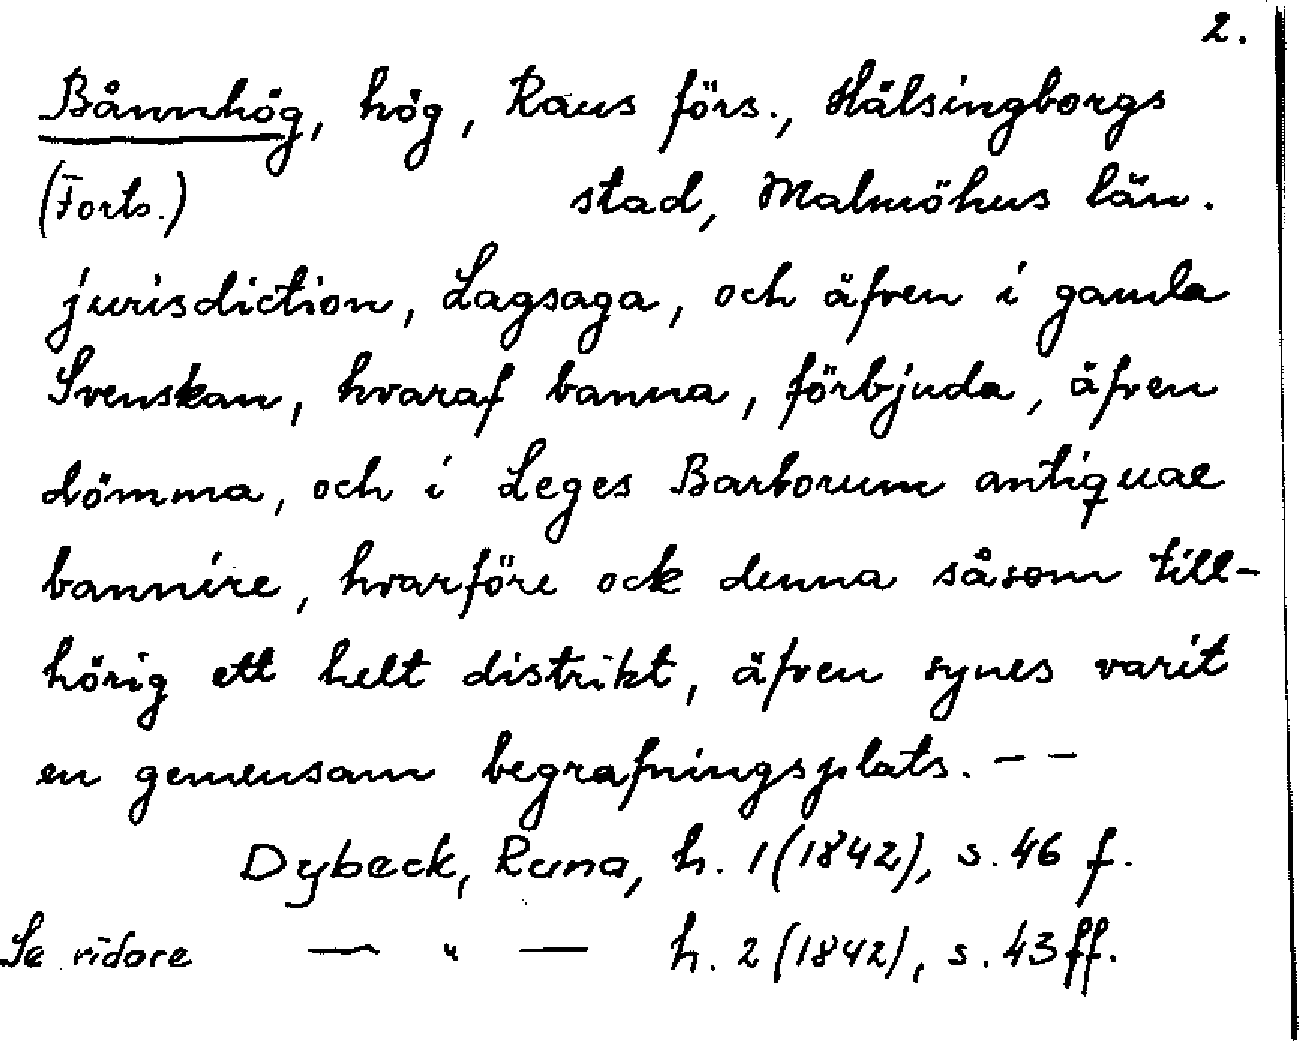 2.
Bånnhög, hög, Raus förs., Hälsingborgs
(Forts.) stad, Malmöhus län.
jurisdiction, Lagsaga, och äfven i gamla
Svenskan, hvaraf banna, förbjuda, äfven
dömma, och i Leges Barborum antiquae
bannire, hvarföre ock denna såsom till-
hörig ett helt distrikt, äfven synes varit
en gemensam begrafningsplats. - -
Dybeck, Runa, h. 1 (1842), s. 46 f.
Se vidare — " — h. 2 (1842), s. 43 ff.